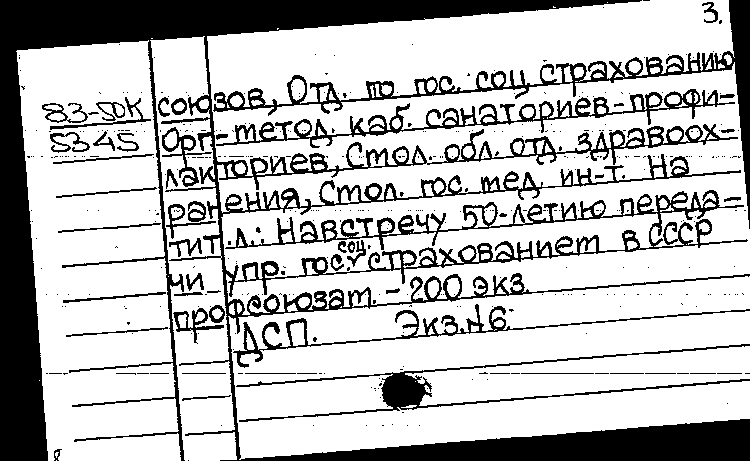 3.
83-50К союзов, Отд. по гос. соц. страхованию
5345 Орг-метод. каб. санаториев-профи-
лакториев, Стол. обл. отд. здравоох-
ранения, Стол. гос. мед. ин-т. На
тит.л.: Навстречу 50-летию переда-
чи упр. гос. соц. страхованием в СССР
профсоюзам. - 200 экз.
ДСП. Экз.№6.